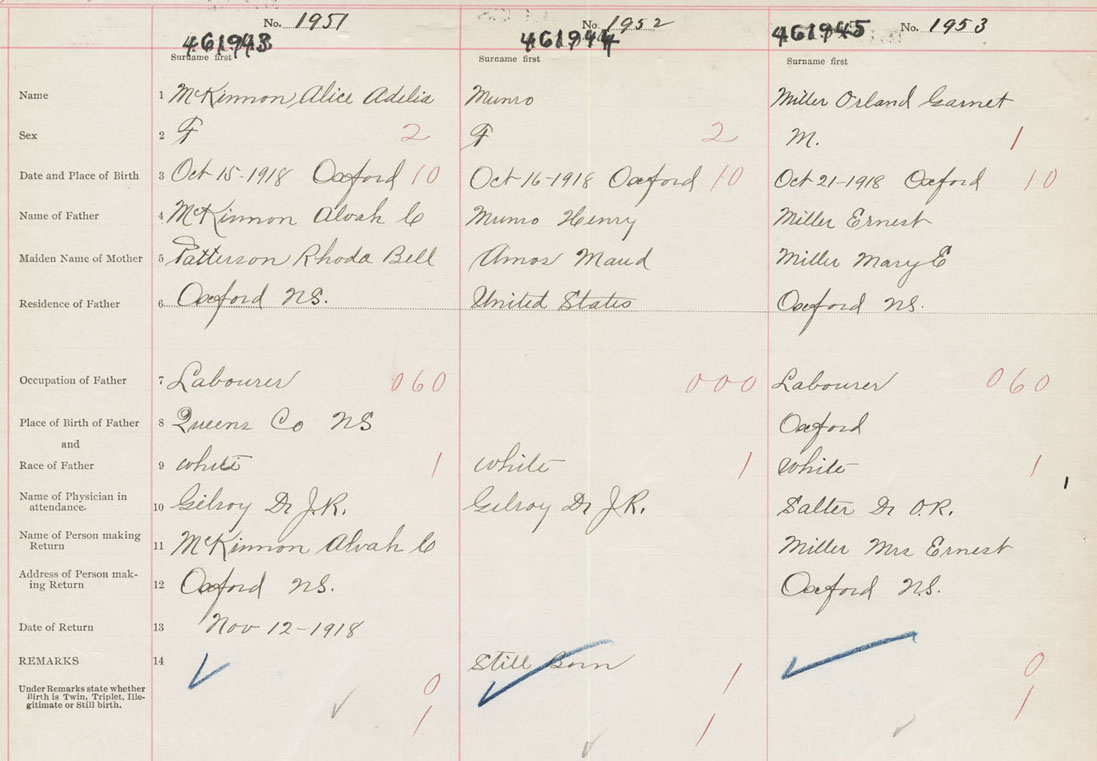 No. 1951 No. 1952 No. 1953
461943 461944 461945
Surname first Surname first Surname first
Name 1 McKinnon, Alice Adelia Munro Miller Orland Garnet
Sex 2 F 2 F 2 M. 1
Date and Place of Birth 3 Oct 15-1918 Oxford 10 Oct 16-1918 Oxford 10 Oct 21-1918 Oxford 10
Name of Father 4 McKinnon Alvah C Munro Henry Miller Ernest
Maiden Name of Mother 5 Patterson Rhoda Bell Amos Maud Miller Mary E
Residence of Father 6 Oxford NS. United States Oxford NS.
Occupation of Father 7 Labourer 060 000 Labourer 060
Place of Birth of Father 8 Queens Co NS Oxford
and
Race of Father 9 white 1 white 1 white 1
Name of Physician in
attendance. 10 Gilroy Dr J.R. Gilroy Dr J.R. Salter Dr O.R.
Name of Person making
Return 11 McKinnon Alvah C Miller Mrs Ernest
Address of Person mak-
ing Return 12 Oxford NS. Oxford NS.
Date of Return 13 Nov 12-1918
REMARKS 14 Still Born
Under Remarks state whether
Birth is Twin, Triplet, Ille-
gitimate or Still birth.
0 1 0
1 1 1